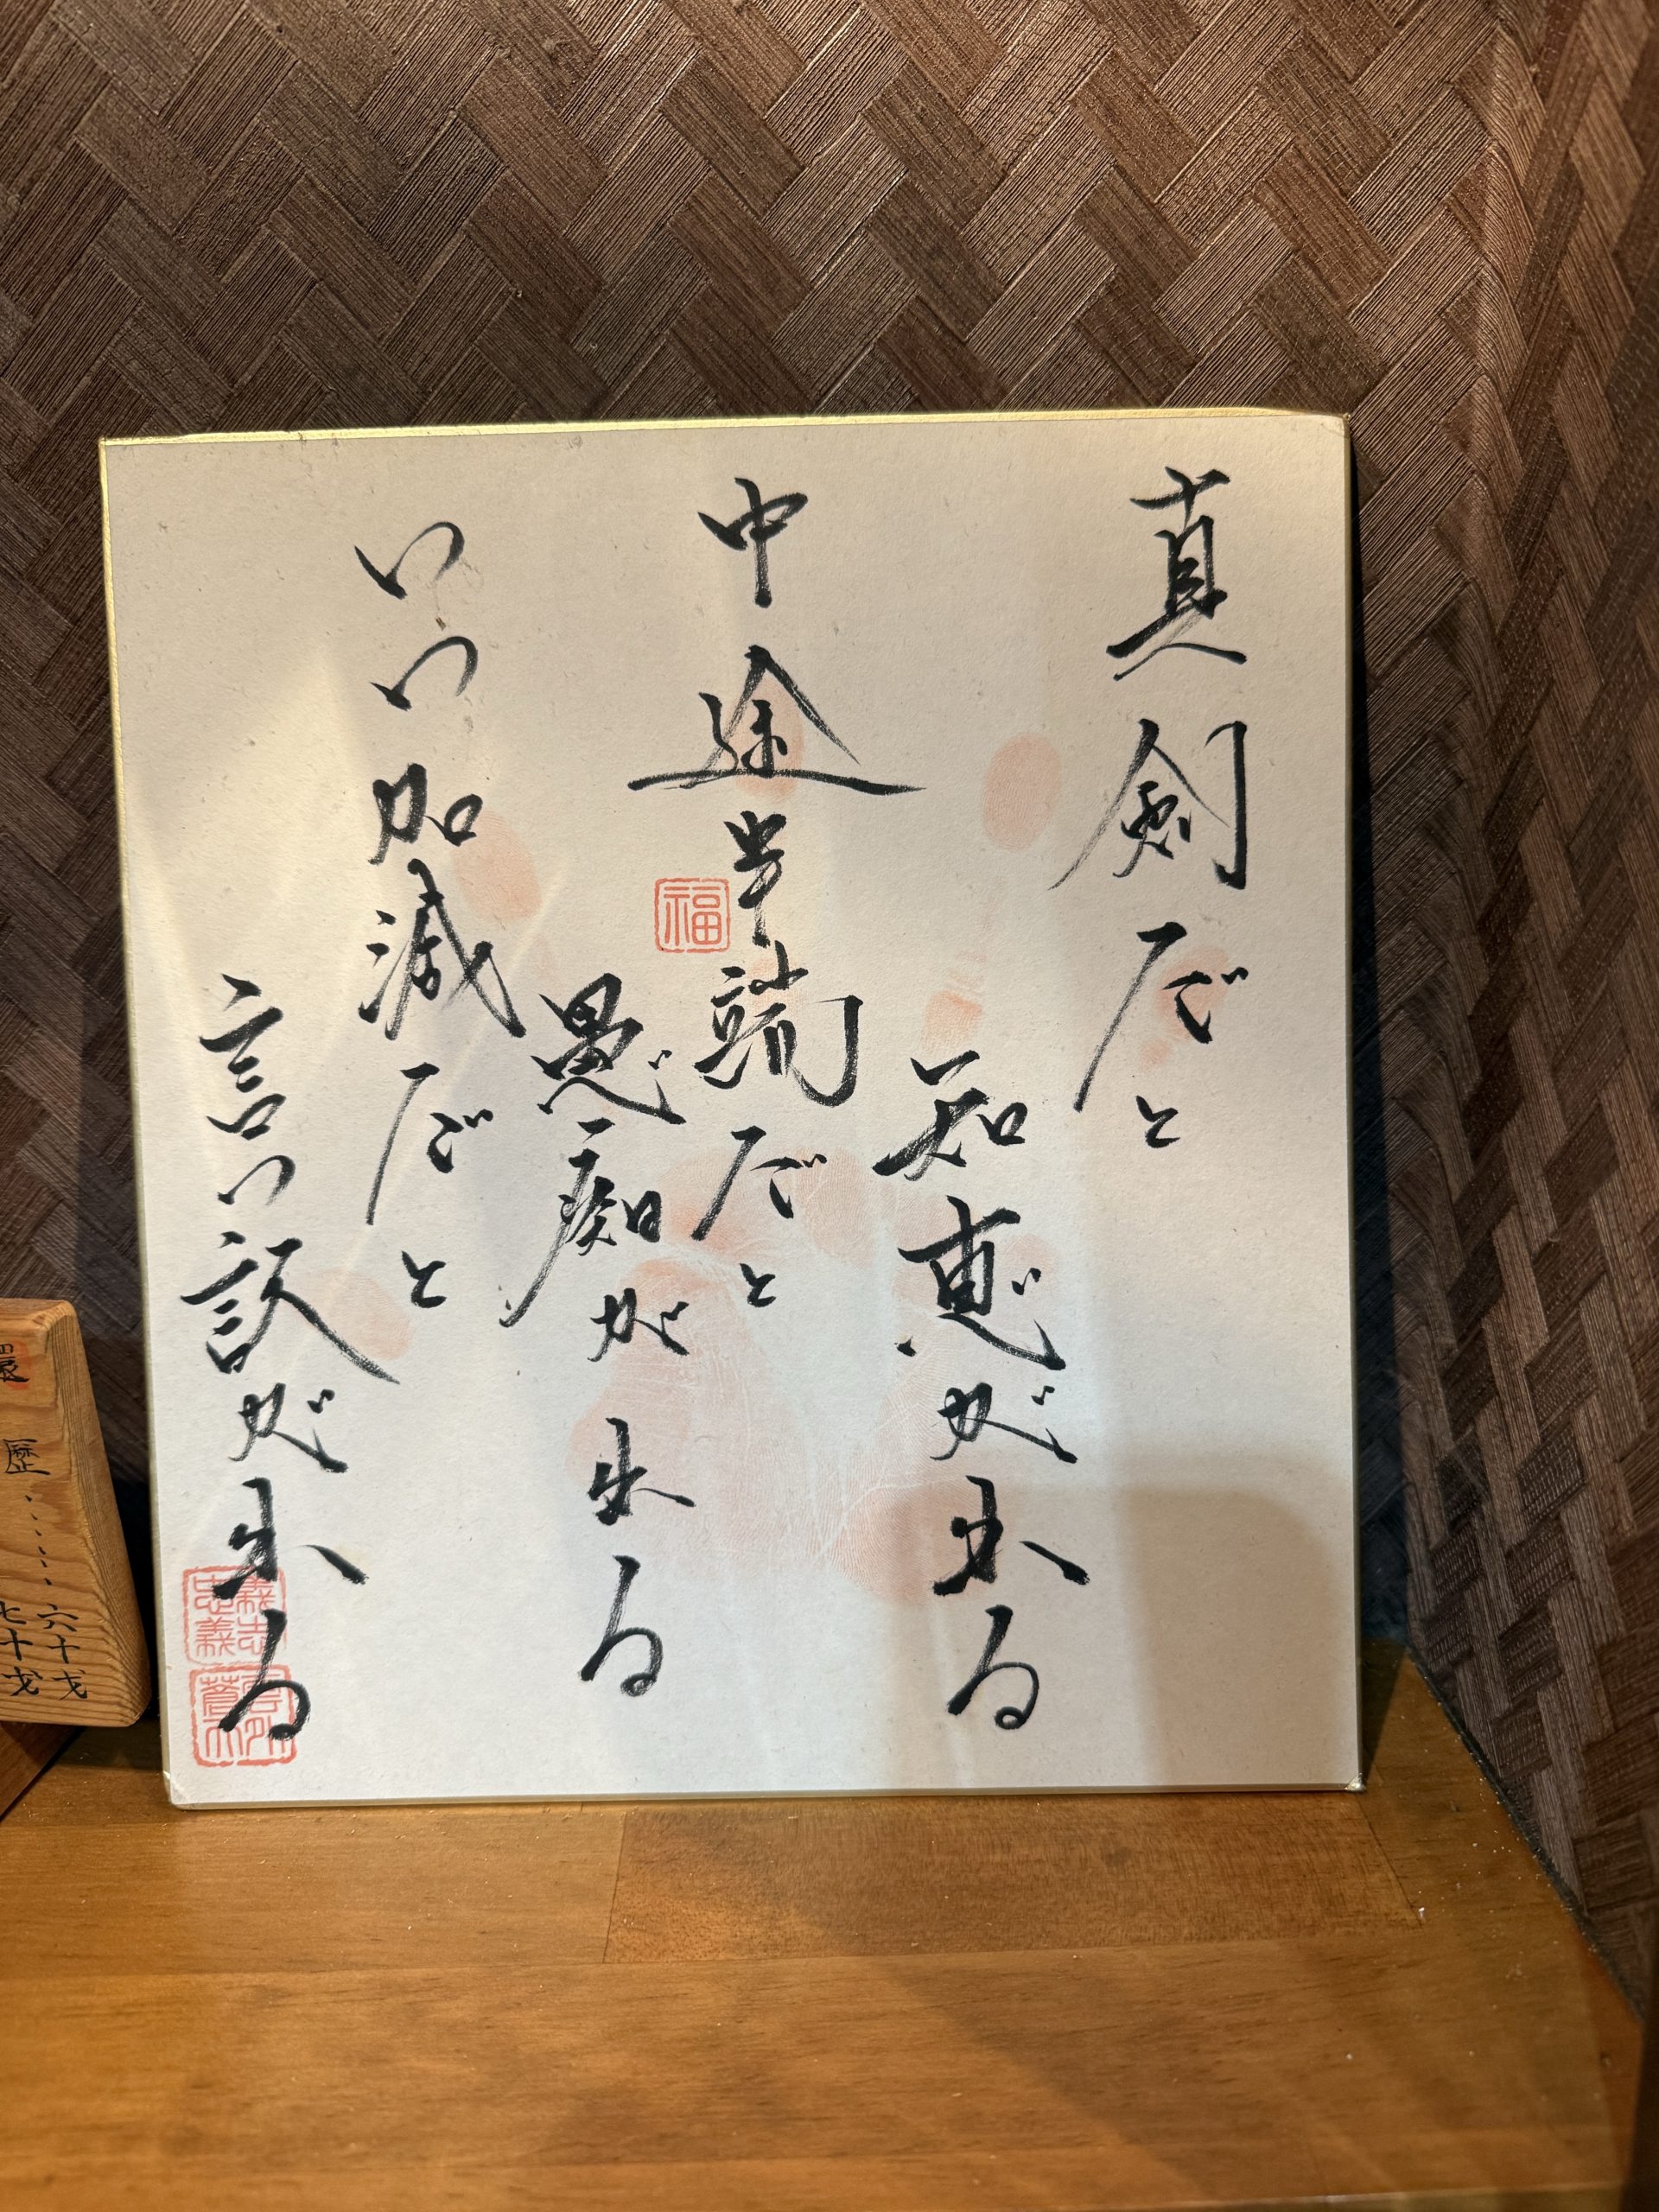 真剣だと
知恵が出る
中途半端だと
愚痴が出る
いい加減だと
言い訳が出る
福
還暦……六十才
七十才